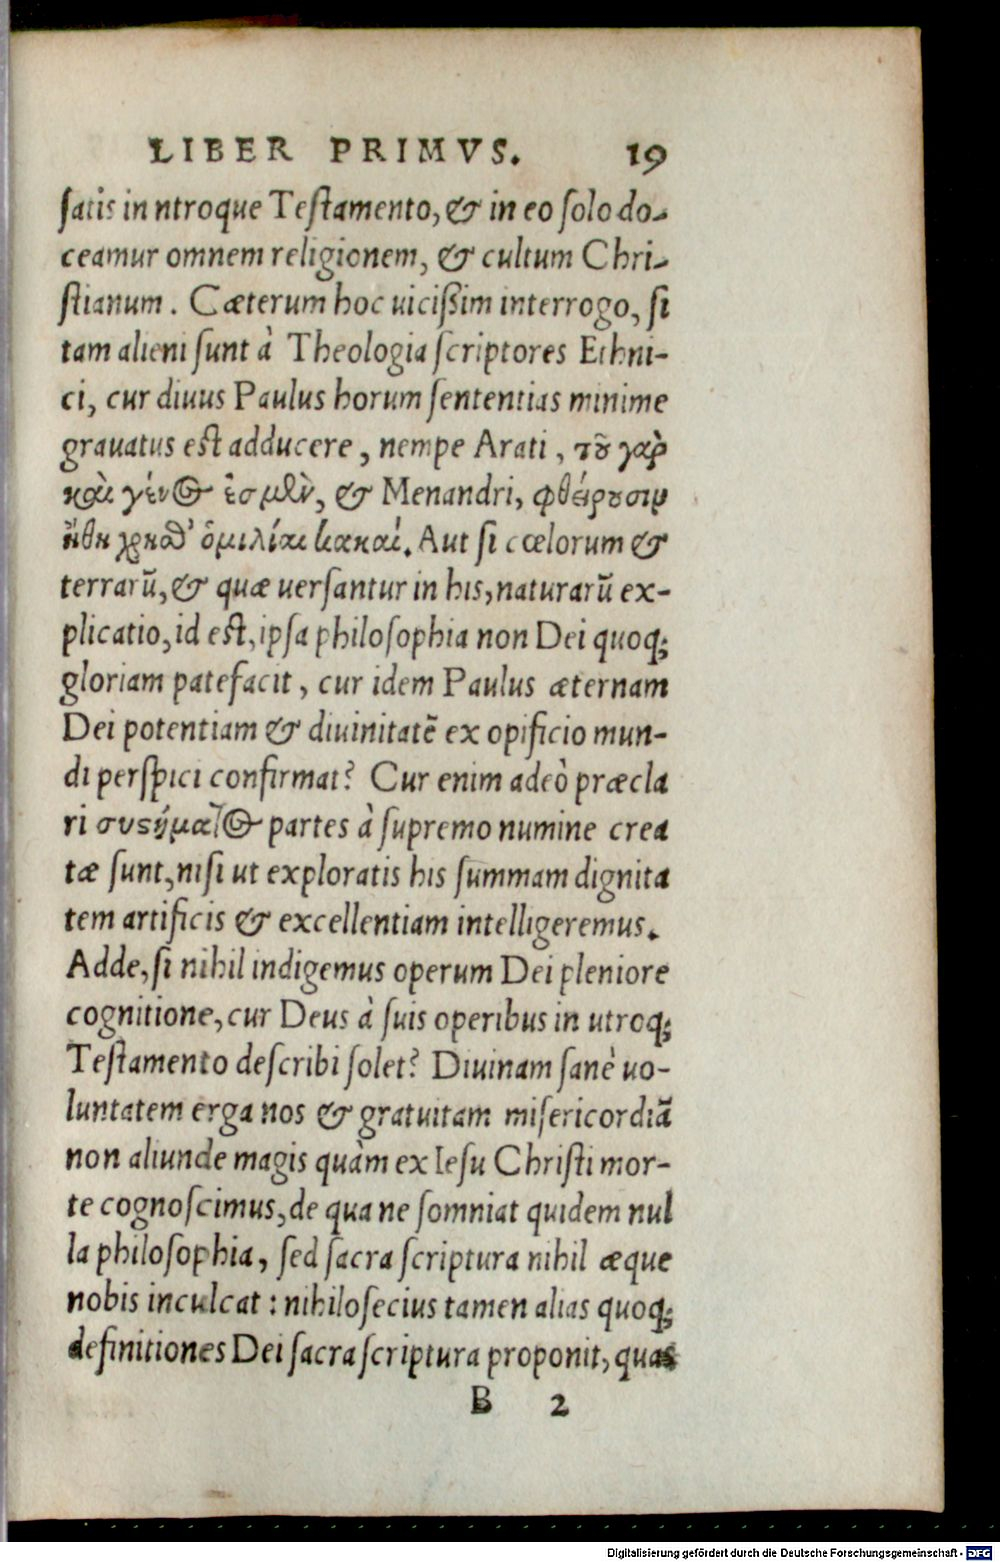 LIBER PRIMVS. 19
ſatis in ntroque Teſtamento, & in eo ſolo do-
ceamur omnem religionem, & cultum Chri-
ſtianum. Cæterum hoc uicißim interrogo, ſi
tam alieni ſunt à Theologia ſcriptores Ethni-
ci, cur diuus Paulus horum ſententias minime
grauatus eſt adducere, nempe Arati, τοῦ γαρ̀
καὶ γένος ἐσμὲν, & Menandri, φθείρουσιν
ἤθη χρησθ' ὁμιλίαι κακαί. Aut ſi cœlorum &
terrarũ, & quæ uerſantur in his, naturarũ ex-
plicatio, id eſt, ipſa philoſophia non Dei quoq;
gloriam patefacit, cur idem Paulus æternam
Dei potentiam & diuinitatẽ ex opificio mun-
di perſpici confirmat? Cur enim adeò præcla
ri συστήματος partes à ſupremo numine crea
tæ ſunt, niſi ut exploratis his ſummam dignita
tem artificis & excellentiam intelligeremus.
Adde, ſi nihil indigemus operum Dei pleniore
cognitione, cur Deus à ſuis operibus in utroq;
Teſtamento deſcribi ſolet? Diuinam ſanè uo-
luntatem erga nos & gratuitam miſericordiã
non aliunde magis quàm ex Ieſu Chriſti mor-
te cognoſcimus, de qua ne ſomniat quidem nul
la philoſophia, ſed ſacra ſcriptura nihil æque
nobis inculcat: nihiloſecius tamen alias quoq;
definitiones Dei ſacra ſcriptura proponit, quas
B 2
Digitalisierung gefördert durch die Deutsche Forschungsgemeinschaft - DFG